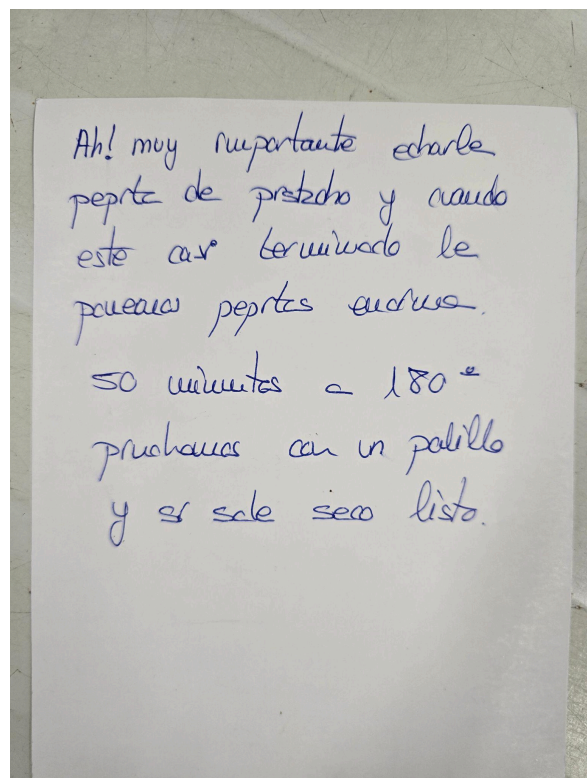 Ah! muy importante echarle
pepitas de pistacho y cuando
este casi terminado le
ponemos pepitas encima.
50 minutos a 180º
pinchamos con un palillo
y si sale seco listo.